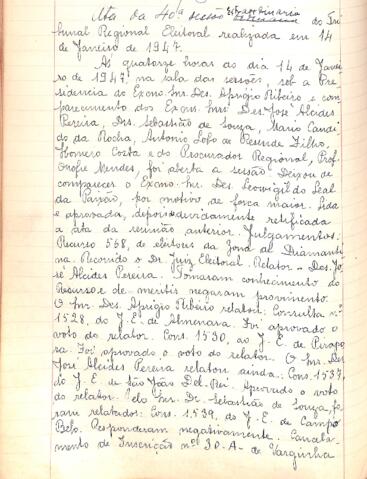 Ata da 40ª sessão extraordinaria do Tri-
bunal Regional Eleitoral realizada em 14
de Janeiro de 1947.
Ás quatorze horas do dia 14 de Janei-
ro de 1947, na sala das sessões, sob a Pre-
sidencia do Exmo. Snr. Des. Aprigio Ribeiro e com-
parecimento dos Exms. Snrs. Des. José Alcides
Pereira, Drs. Sebastião de Souza, Mario Candi-
do da Rocha, Antonio Lobo de Resende Filho,
Homero Costa e do Procurador Regional, Prof.
Onofre Mendes, foi aberta a sessão. Deixou de
comparecer o Exmo. Snr. Des. Leovigildo Leal
da Paixão, por motivo de força maior. Lida
e aprovada, depois de devidamente retificada
a ata da reunião anterior. Julgamentos.
Recurso 568, de eleitores da Zona de Diamanti-
na. Recorrido o Dr. Juiz Eleitoral. Relator - Des. Jo-
sé Alcides Pereira. Tomaram conhecimento do
Recurso e de meritis negaram provimento.
O Snr. Des. Aprigio Ribeiro relatou: Consulta n.º
1528, do J. E. de Almenara. Foi aprovado o
voto do relator. Cons. 1530, do J. E. de Pirapo-
ra. Foi aprovado o voto do relator. O Snr. Des.
José Alcides Pereira relatou ainda: Cons. 1537,
do J. E. de São João Del-Rei. Aprovado o voto
do relator. Pelo Snr. Dr. Sebastião de Souza, fo-
ram relatados: Cons. 1.539, do J. E. de Campo
Belo. Responderam negativamente. Cancela-
mento de Inscrição nº 30-A- de Varginha